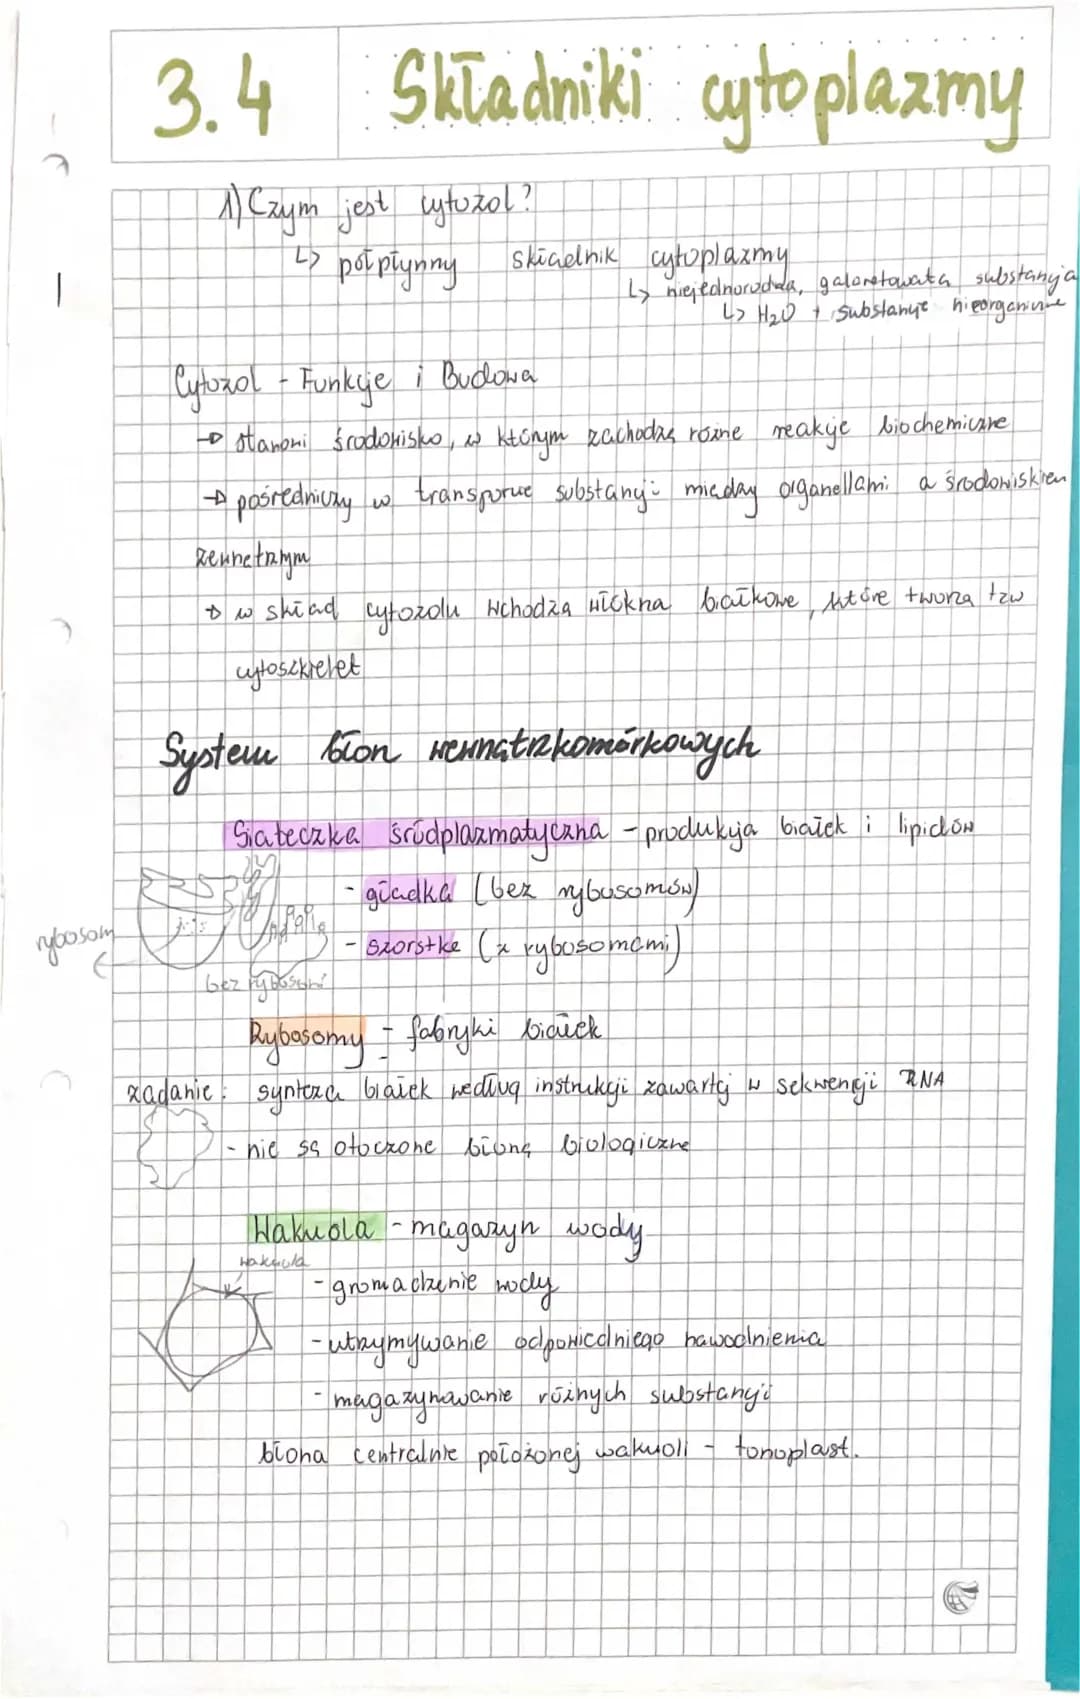 3.4 Składniki cytoplazmy
1) Czym jest cytozol?
↳ półpłynny składnik cytoplazmy
↳ niejednorodna, galaretowata substancja
↳ H₂O + substancje nieorganiczne
Cytozol - Funkcje i Budowa
→ stanowi środowisko, w którym zachodzą różne reakcje biochemiczne
→ pośredniczy w transporcie substancji między organellami a środowiskiem
zewnętrznym
→ w skład cytozolu wchodzą włókna białkowe, które tworzą tzw
cytoszkielet
System błon wewnątrzkomórkowych
Siateczka śródplazmatyczna - produkcja białek i lipidów
- gładka (bez rybosomów)
rybosom
- szorstka (z rybosomami)
bez rybosomów
Rybosomy - fabryki białek
zadanie: synteza białek według instrukcji zawartej w sekwencji RNA
- nie są otoczone błoną biologiczną
Wakuola - magazyn wody
wakuola
- gromadzenie wody
- utrzymywanie odpowiedniego nawodnienia
- magazynowanie różnych substancji
błona centralnie położonej wakuoli - tonoplast.